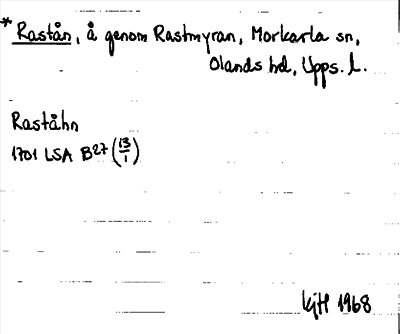 * Rastån, å genom Rastmyran, Morkarla sn,
Olands hd, Upps. l.
Raståhn
1701 LSA B27 (13/1)
KjH 1968